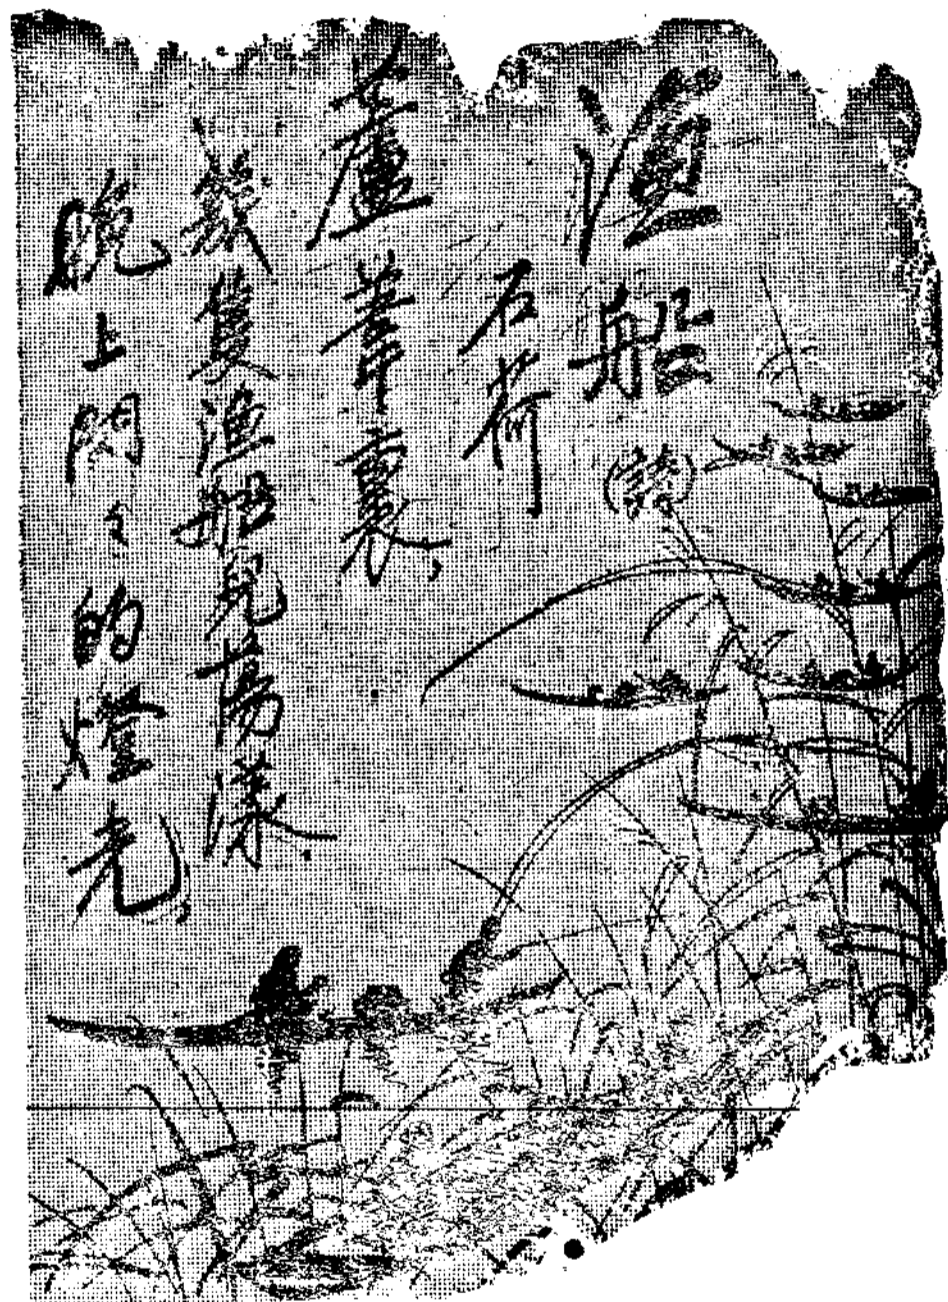 漁船(詩)
石荷
蘆葦裏、
幾隻漁船兒蕩漾、
晚上閃々的燈光、